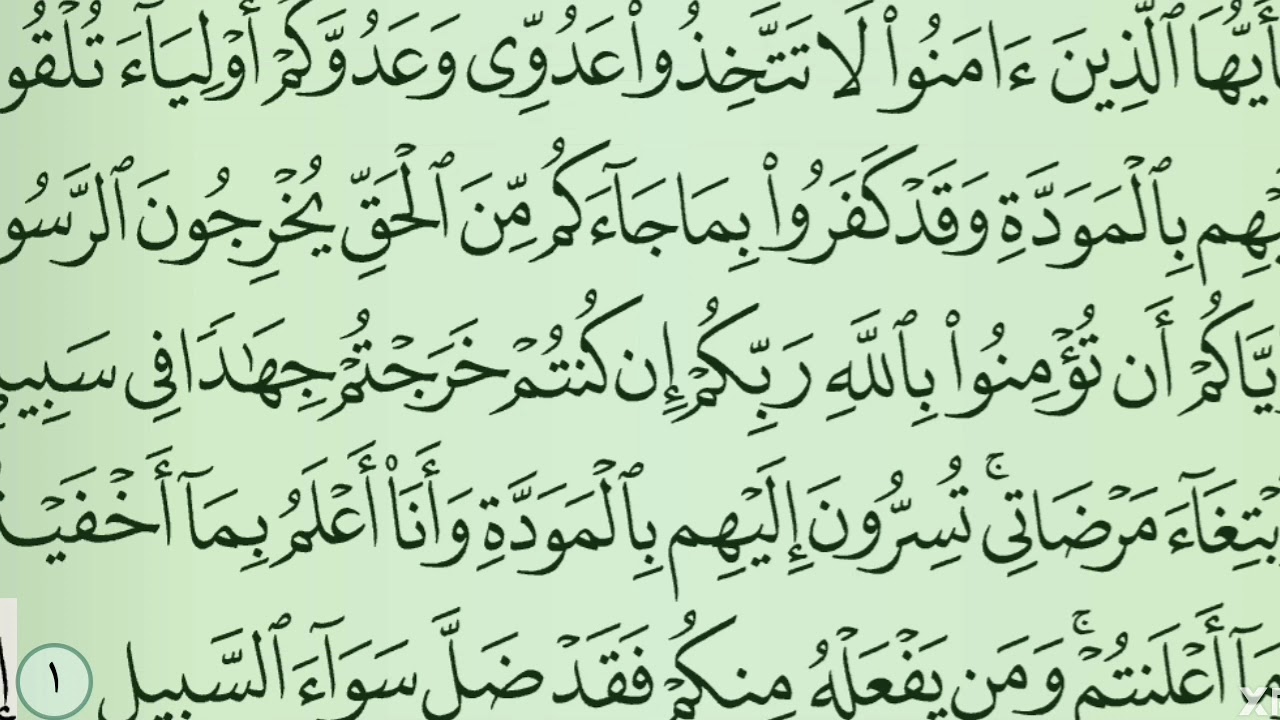 أَيُّهَا ٱلَّذِينَ ءَامَنُوا۟ لَا تَتَّخِذُوا۟ عَدُوِّى وَعَدُوَّكُمْ أَوْلِيَآءَ تُلْقُو
بِهِم بِٱلْمَوَدَّةِ وَقَدْ كَفَرُوا۟ بِمَا جَآءَكُم مِّنَ ٱلْحَقِّ يُخْرِجُونَ ٱلرَّسُو
يَّاكُمْ أَن تُؤْمِنُوا۟ بِٱللَّهِ رَبِّكُمْ إِن كُنتُمْ خَرَجْتُمْ جِهَٰدًا فِى سَبِي
بْتِغَآءَ مَرْضَاتِى ۚ تُسِرُّونَ إِلَيْهِم بِٱلْمَوَدَّةِ وَأَنَا۠ أَعْلَمُ بِمَآ أَخْفَيْ
مَآ أَعْلَنتُمْ ۚ وَمَن يَفْعَلْهُ مِنكُمْ فَقَدْ ضَلَّ سَوَآءَ ٱلسَّبِيلِ ١